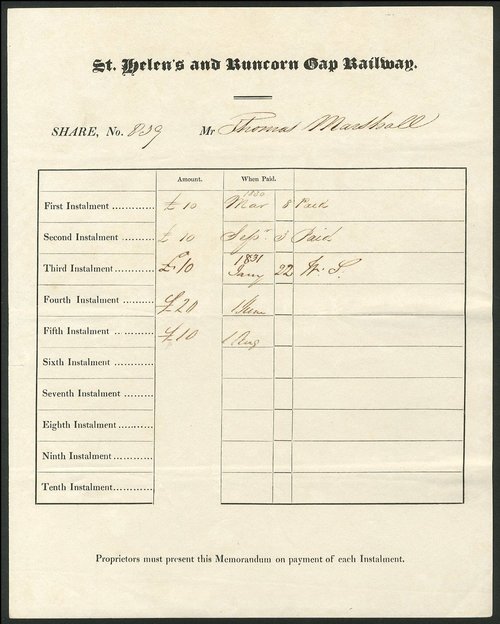 St. Helen's and Runcorn Gap Railway.
SHARE, No. 839 Mr Thomas Marshall
Amount. When Paid.
1830
First Instalment ............ £10 Mar 8 Paid
Second Instalment ........... £10 Sepr 3 Paid
1831
Third Instalment ............ £10 Jany 22 W. S.
Fourth Instalment ........... £20 1
Fifth Instalment .. ......... £10 1 Aug
Sixth Instalment ............
Seventh Instalment ..........
Eighth Instalment ...........
Ninth Instalment ............
Tenth Instalment ............
Proprietors must present this Memorandum on payment of each Instalment.